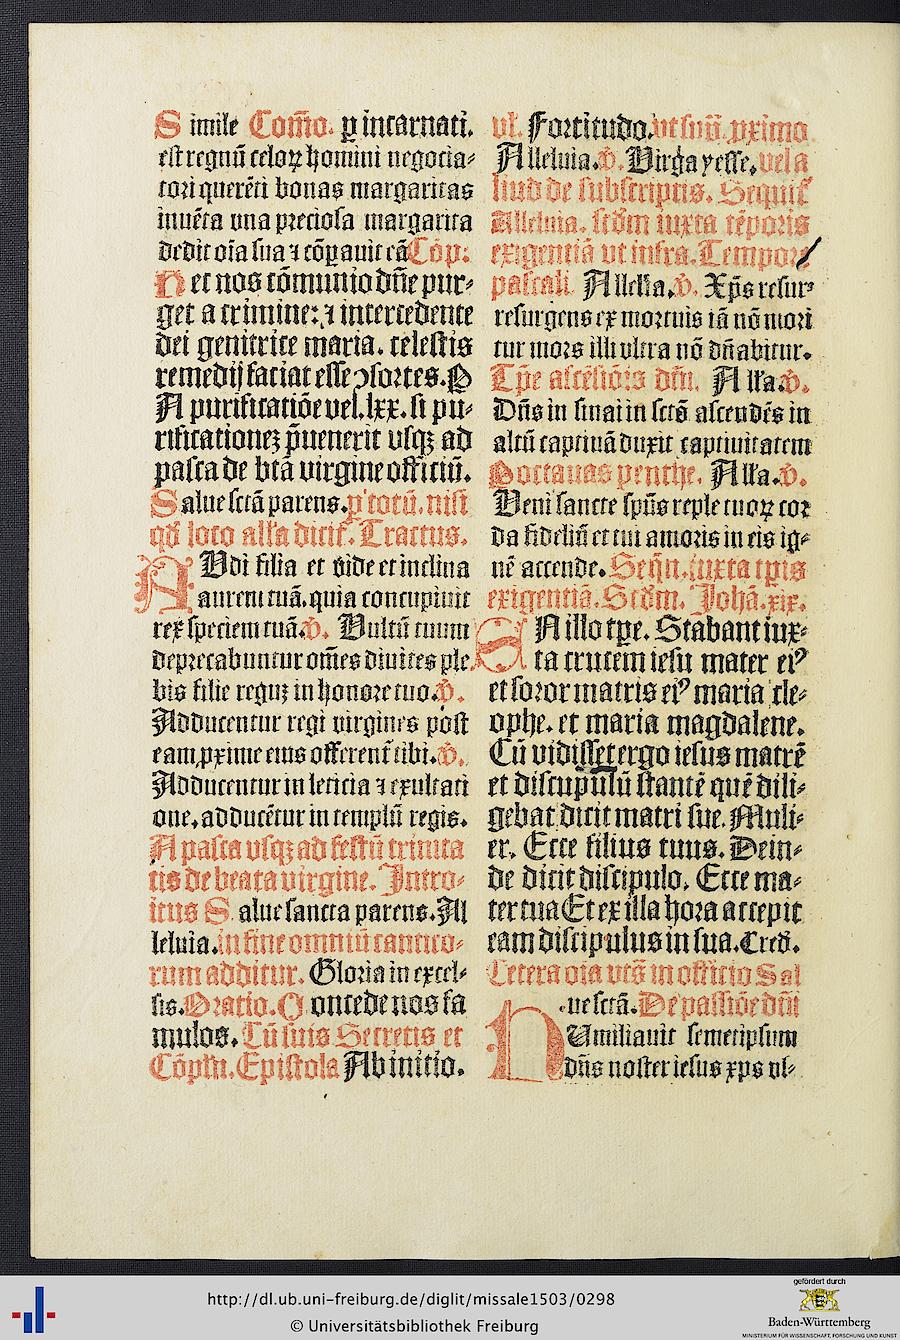 Simile Com̄o. ꝑ incarnati.
est regnū celoꝝ homini negocia⸗
tori querēti bonas margaritas
inuēta vna preciosa margarita
dedit oīa sua ⁊ cōꝑauit eā Cōp:
Het nos cōmunio dn̄e pur⸗
get a crimine: ⁊ intercedente
dei genitrice maria. celestis
remedij faciat esse ↄsortes. P
A purificatiōe vel .lxx. si pu⸗
rificationeꝫ p̄uenerit vsqꝫ ad
pasca de btā virgine officiū.
Salue sctā parens. ꝑ totū. nisi
qd̄ loco allā dicit᷑. Tractus.
AUdi filia et vide et inclina
aurem tuā. quia concupiuit
rex speciem tuā. ℣. Uultū tuum
deprecabuntur om̄es diuites ple
bis filie reguꝫ in honore tuo. ℣.
Adducentur regi virgines post
eam, ꝓxime eius offerent᷑ tibi. ℣.
Adducentur in leticia ⁊ exultati
one, adducētur in templū regis.
A pasca vsqꝫ ad festū trinita
tis de beata virgine. Intro⸗
itus Salue sancta parens. All
leluia. in fine omniū cantico⸗
rum additur. Gloria in excel⸗
sis. Oratio. Concede nos fa
mulos. Cū suis Secretis et
Cōpln̄. Epistola Ab initio.
vl. Fortitudo, vt suū. ꝓximo
Alleluia. ℣. Virga yesse, vel a
liud de subscriptis. Sequit᷑
Alleluia. scdm̄ iuxta tēporis
exigentiā vt infra. Tempore
pascali Allelia, ℣. Xp̄s resur⸗
resurgens ex mortuis iā nō mori
tur mors illi vltra nō dn̄abitur.
Tp̄e ascēsiōis dn̄i. Alla. ℣.
Dn̄s in sinai in sctō ascendēs in
altū captiuā duxit captiuitatem
Poctauas penthe. Alla. ℣.
Veni sancte spūs reple tuoꝝ cor
da fideliū et tui amoris in eis ig⸗
nē accende. Seqn̄. iuxta tp̄is
exigentiā. Scdm̄. Johā. xix.
IN illo tp̄e. Stabant iux⸗
ta crucem iesu mater eiꝰ
et soror matris eiꝰ maria cle⸗
ophe. et maria magdalene.
Cū vidisset ergo iesus matrē
et discupulū stantē quē dili⸗
gebat dicit matri sue. Muli⸗
er. Ecce filius tuus. Dein⸗
de dicit discipulo. Ecce ma⸗
ter tua Et ex illa hora accepit
eam discipulus in sua. Cred.
Cetera oīa vts̄ in officio Sal
ue sctā. De passiōe dn̄i
HUmiliauit semetipsum
dn̄s noster iesus xp̄s vs⸗
http://dl.ub.uni-freiburg.de/diglit/missale1503/0298
© Universitätsbibliothek Freiburg
gefördert durch
Baden-Württemberg
MINISTERIUM FÜR WISSENSCHAFT, FORSCHUNG UND KUNST